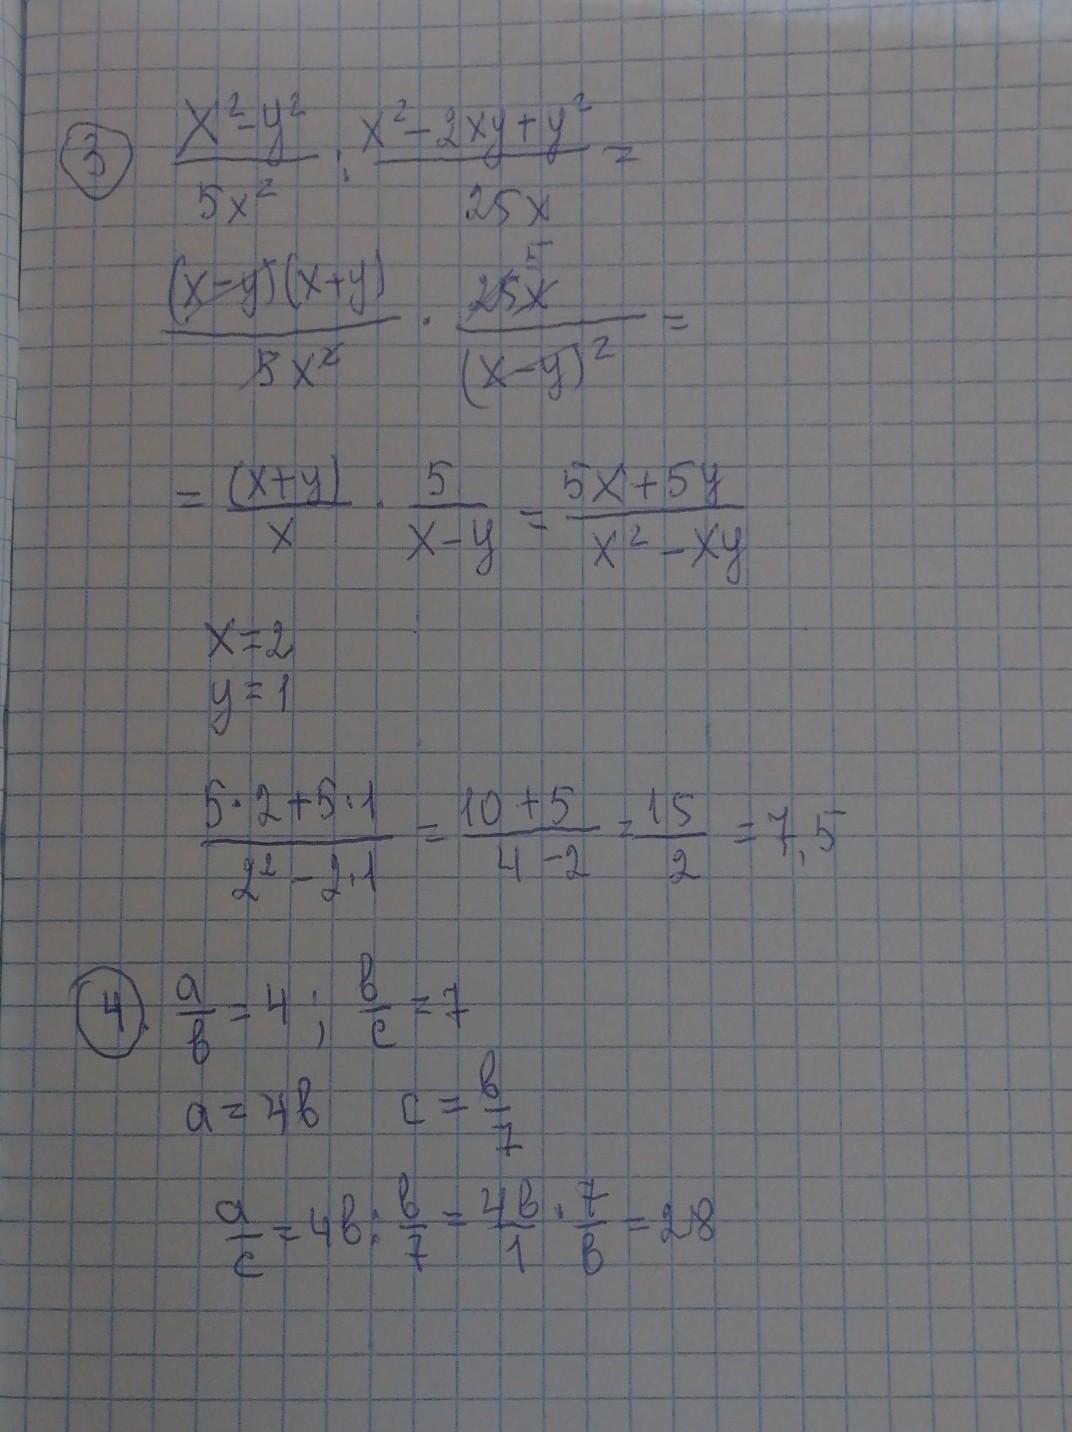 3 (x²-y²)/(5x²) : (x²-2xy+y²)/(25x) =
((x-y)(x+y))/(5x²) · (25x)/((x-y)²) = 5
= (x+y)/x · 5/(x-y) = (5x+5y)/(x²-xy)
x=2
y=1
(5·2+5·1)/(2²-2·1) = (10+5)/(4-2) = 15/2 = 7,5
4. a/b = 4 ; b/c = 7
a=4b c=b/7
a/c = 4b : b/7 = 4b/1 · 7/b = 28